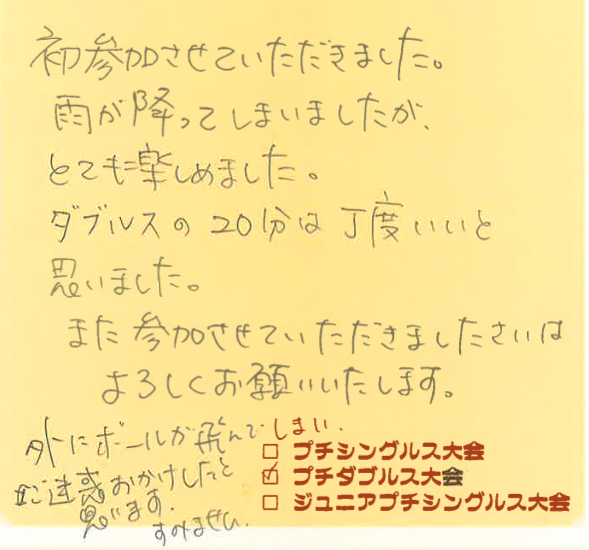 初参加させていただきました。
雨が降ってしまいましたが、
とても楽しめました。
ダブルスの20分は丁度いいと
思いました。
また参加させていただきましたさいは
よろしくお願いいたします。
外にボールが飛んでしまい、
ご迷惑おかけしたと
思います。
すみません。
□ プチシングルス大会
☑ プチダブルス大会
□ ジュニアプチシングルス大会